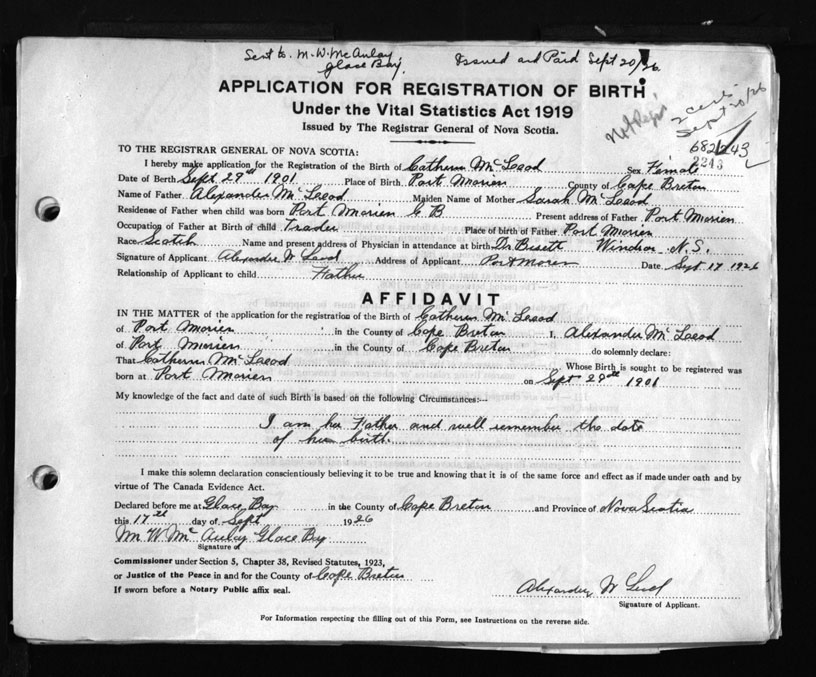 Sent to M. W. McAulay Issued and Paid Sept 20/26
Glace Bay.
APPLICATION FOR REGISTRATION OF BIRTH
Under the Vital Statistics Act 1919
Issued by The Registrar General of Nova Scotia.
Not Regd.
2 certs.
Sept 20/26
682243
2243
TO THE REGISTRAR GENERAL OF NOVA SCOTIA:
I hereby make application for the Registration of the Birth of Catherine McLeod Sex Female
Date of Birth Sept. 29th 1901 Place of Birth Port Morien County of Cape Breton
Name of Father Alexander McLeod Maiden Name of Mother Sarah McLeod
Residence of Father when child was born Port Morien C B Present address of Father Port Morien
Occupation of Father at Birth of child Trader Place of birth of Father Port Morien
Race Scotch Name and present address of Physician in attendance at birth Dr. Windsor N.S.
Signature of Applicant Alexander McLeod Address of Applicant Port Morien Date Sept 17 1926
Relationship of Applicant to child Father
AFFIDAVIT
IN THE MATTER of the application for the registration of the Birth of Catherine McLeod
of Port Morien in the County of Cape Breton I, Alexander McLeod
of Port Morien in the County of Cape Breton do solemnly declare:
That Catherine McLeod Whose Birth is sought to be registered was
born at Port Morien on Sept 29th 1901
My knowledge of the fact and date of such Birth is based on the following Circumstances:—
I am her Father and well remember the date
of her birth.
I make this solemn declaration conscientiously believing it to be true and knowing that it is of the same force and effect as if made under oath and by
virtue of The Canada Evidence Act.
Declared before me at Glace Bay in the County of Cape Breton and Province of Nova Scotia
this 17th day of Sept 1926
Wm W McAulay Glace Bay
Signature of
Commissioner under Section 5, Chapter 38, Revised Statutes, 1923,
or Justice of the Peace in and for the County of Cape Breton
If sworn before a Notary Public affix seal.
Alexander McLeod
Signature of Applicant.
For Information respecting the filling out of this Form, see Instructions on the reverse side.